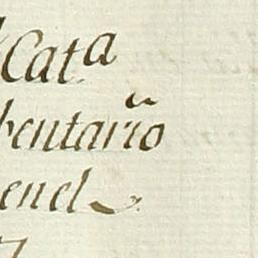 Cat.ª
bentario
enel